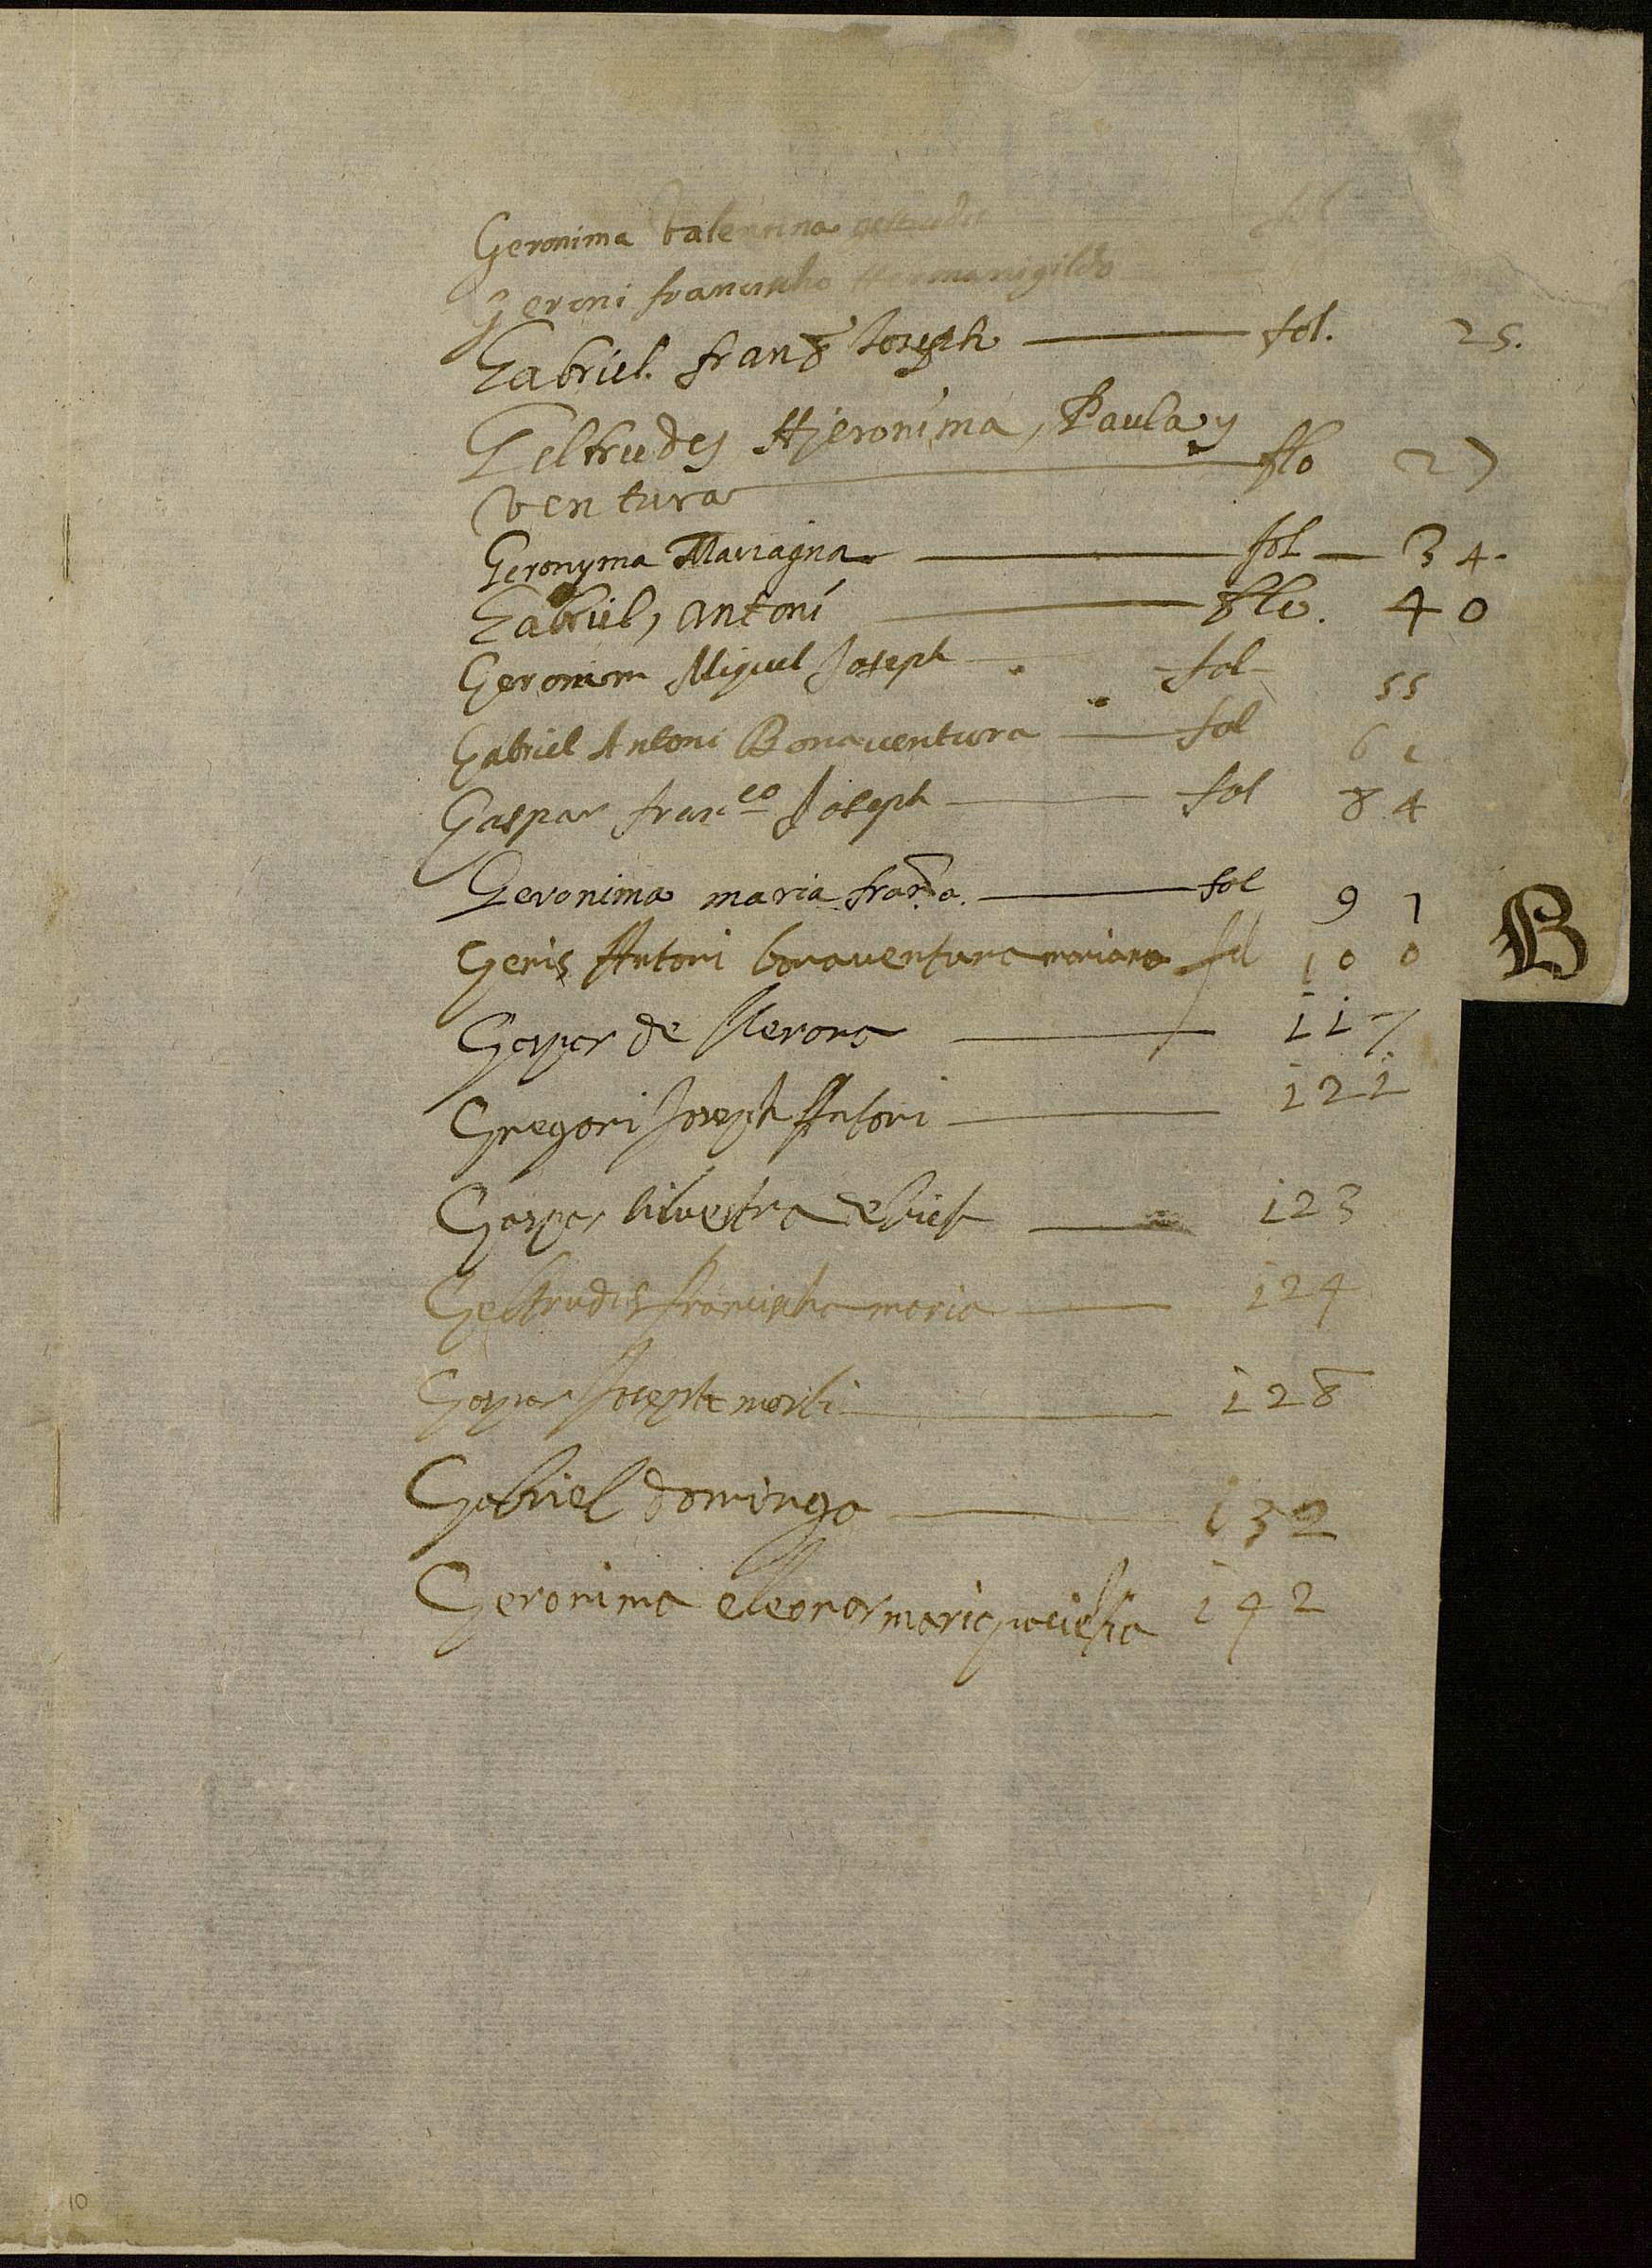 Geronima Valentina geltrudis fol
Geroni francischo Hermanigildo
Gabriel. fran.co Joseph fol. 25.
Geltrudes Hieronima, Paula y
ventura flo 27
Geronyma Mariagna fol 34.
Gabriel, Antoni flo. 40
Geronim Miguel Joseph fol 55
Gabriel Antoni Bonaventura fol 61
Gaspar fran.co Joseph fol 84
Geronima maria fran.ca. fol 91
B
Antoni bonaventura mariano fol 100
Gaspar de 117
Gregori Joseph Antoni 121
Gaspar silvestre 123
Geltrudis francischa maria 124
Gaspar Joseph 128
Gabriel domingo 132
Geronima eleonor maria 142
10